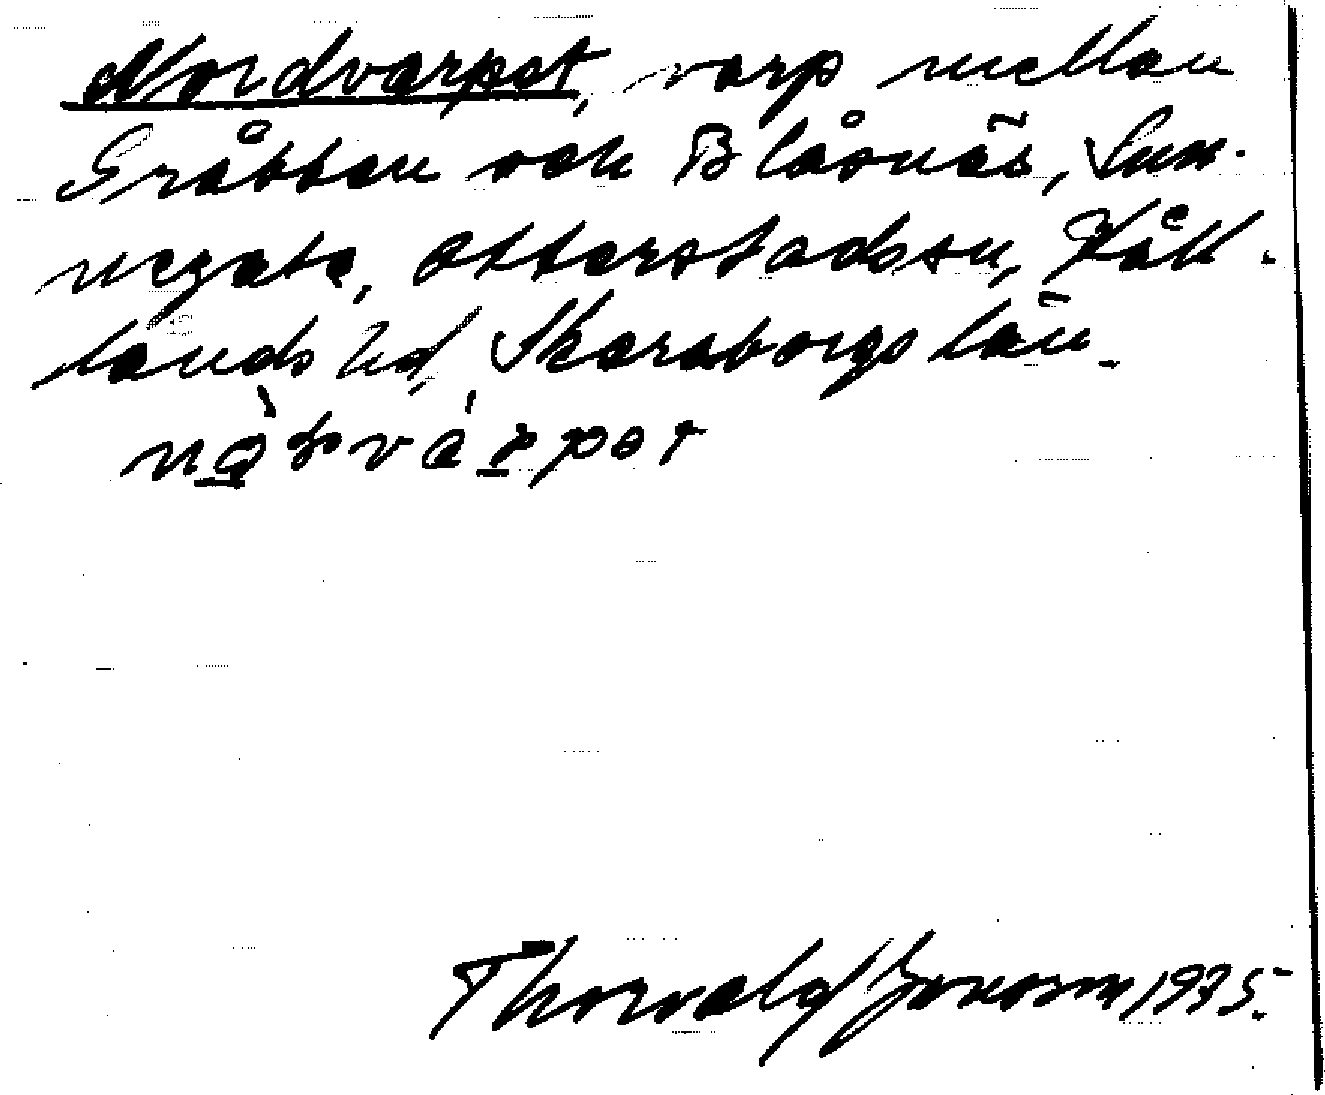 Nordvarpet, varp mellan
Gråbban och Blåsnäs, Sun-
negata, Otterstadssn, Kåll-
lands hd, Skaraborgs län.
Thorvald Jonsson 1975.